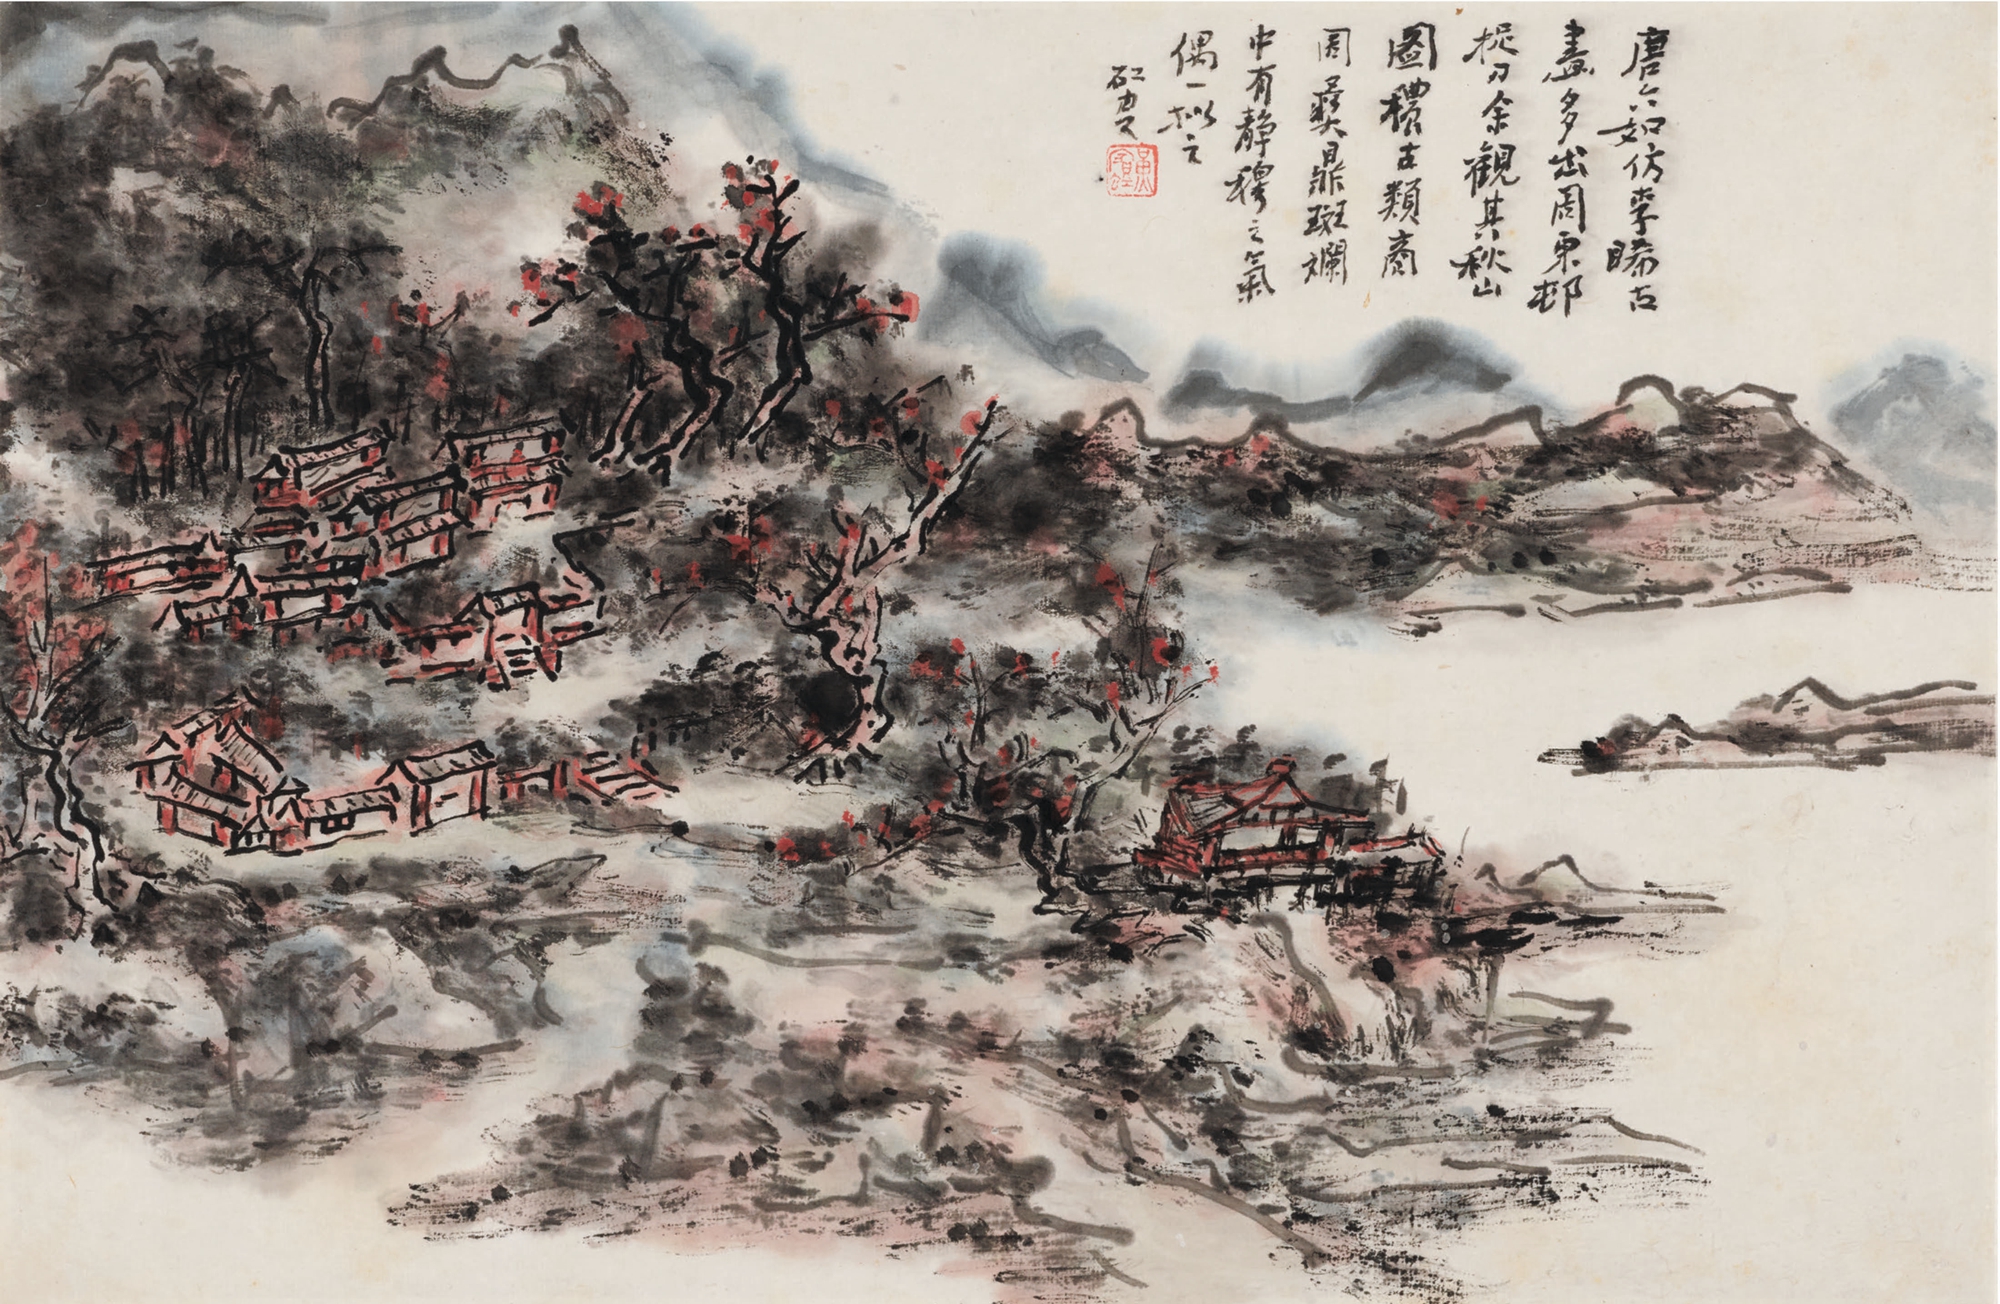 唐六如仿李晞古
畫多出周東邨
捉刀余觀其秋山
圖穠古類商
周彝鼎斑斕
中有靜穆之氣
偶一擬之
虹叟
黃賓虹